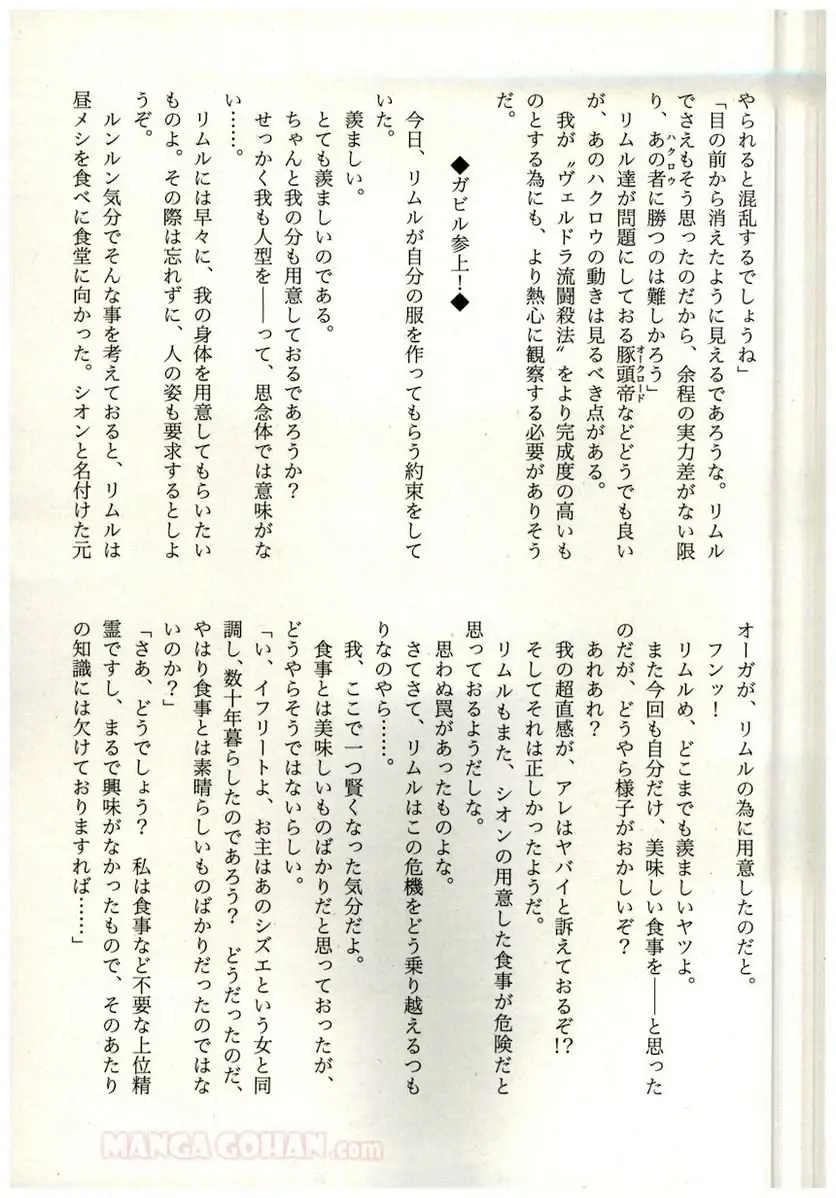 やられると混乱するでしょうね」
「目の前から消えたように見えるであろうな。リムル
でさえもそう思ったのだから、余程の実力差がない限
り、あの者に勝つのは難しかろう」
ハクロウ
リムル達が問題にしておる豚頭帝などどうでも良い
オークロード
が、あのハクロウの動きは見るべき点がある。
我が〝ヴェルドラ流闘殺法〟をより完成度の高いも
のとする為にも、より熱心に観察する必要がありそう
だ。
◆ガビル参上！◆
今日、リムルが自分の服を作ってもらう約束をして
いた。
羨ましい。
とても羨ましいのである。
ちゃんと我の分も用意しておるであろうか？
せっかく我も人型を――って、思念体では意味がな
い……。
リムルには早々に、我の身体を用意してもらいたい
ものよ。その際は忘れずに、人の姿も要求するとしよ
うぞ。
ルンルン気分でそんな事を考えておると、リムルは
昼メシを食べに食堂に向かった。シオンと名付けた元
オーガが、リムルの為に用意したのだと。
フンッ！
リムルめ、どこまでも羨ましいヤツよ。
また今回も自分だけ、美味しい食事を――と思った
のだが、どうやら様子がおかしいぞ？
あれあれ？
我の超直感が、アレはヤバイと訴えておるぞ!?
そしてそれは正しかったようだ。
リムルもまた、シオンの用意した食事が危険だと
思っておるようだしな。
思わぬ罠があったものよな。
さてさて、リムルはこの危機をどう乗り越えるつも
りなのやら……。
我、ここで一つ賢くなった気分だよ。
食事とは美味しいものばかりだと思っておったが、
どうやらそうではないらしい。
「い、イフリートよ、お主はあのシズエという女と同
調し、数十年暮らしたのであろう？　どうだったのだ、
やはり食事とは素晴らしいものばかりだったのではな
いのか？」
「さあ、どうでしょう？　私は食事など不要な上位精
霊ですし、まるで興味がなかったもので、そのあたり
の知識には欠けておりますれば……」
MANGA GOHAN.com